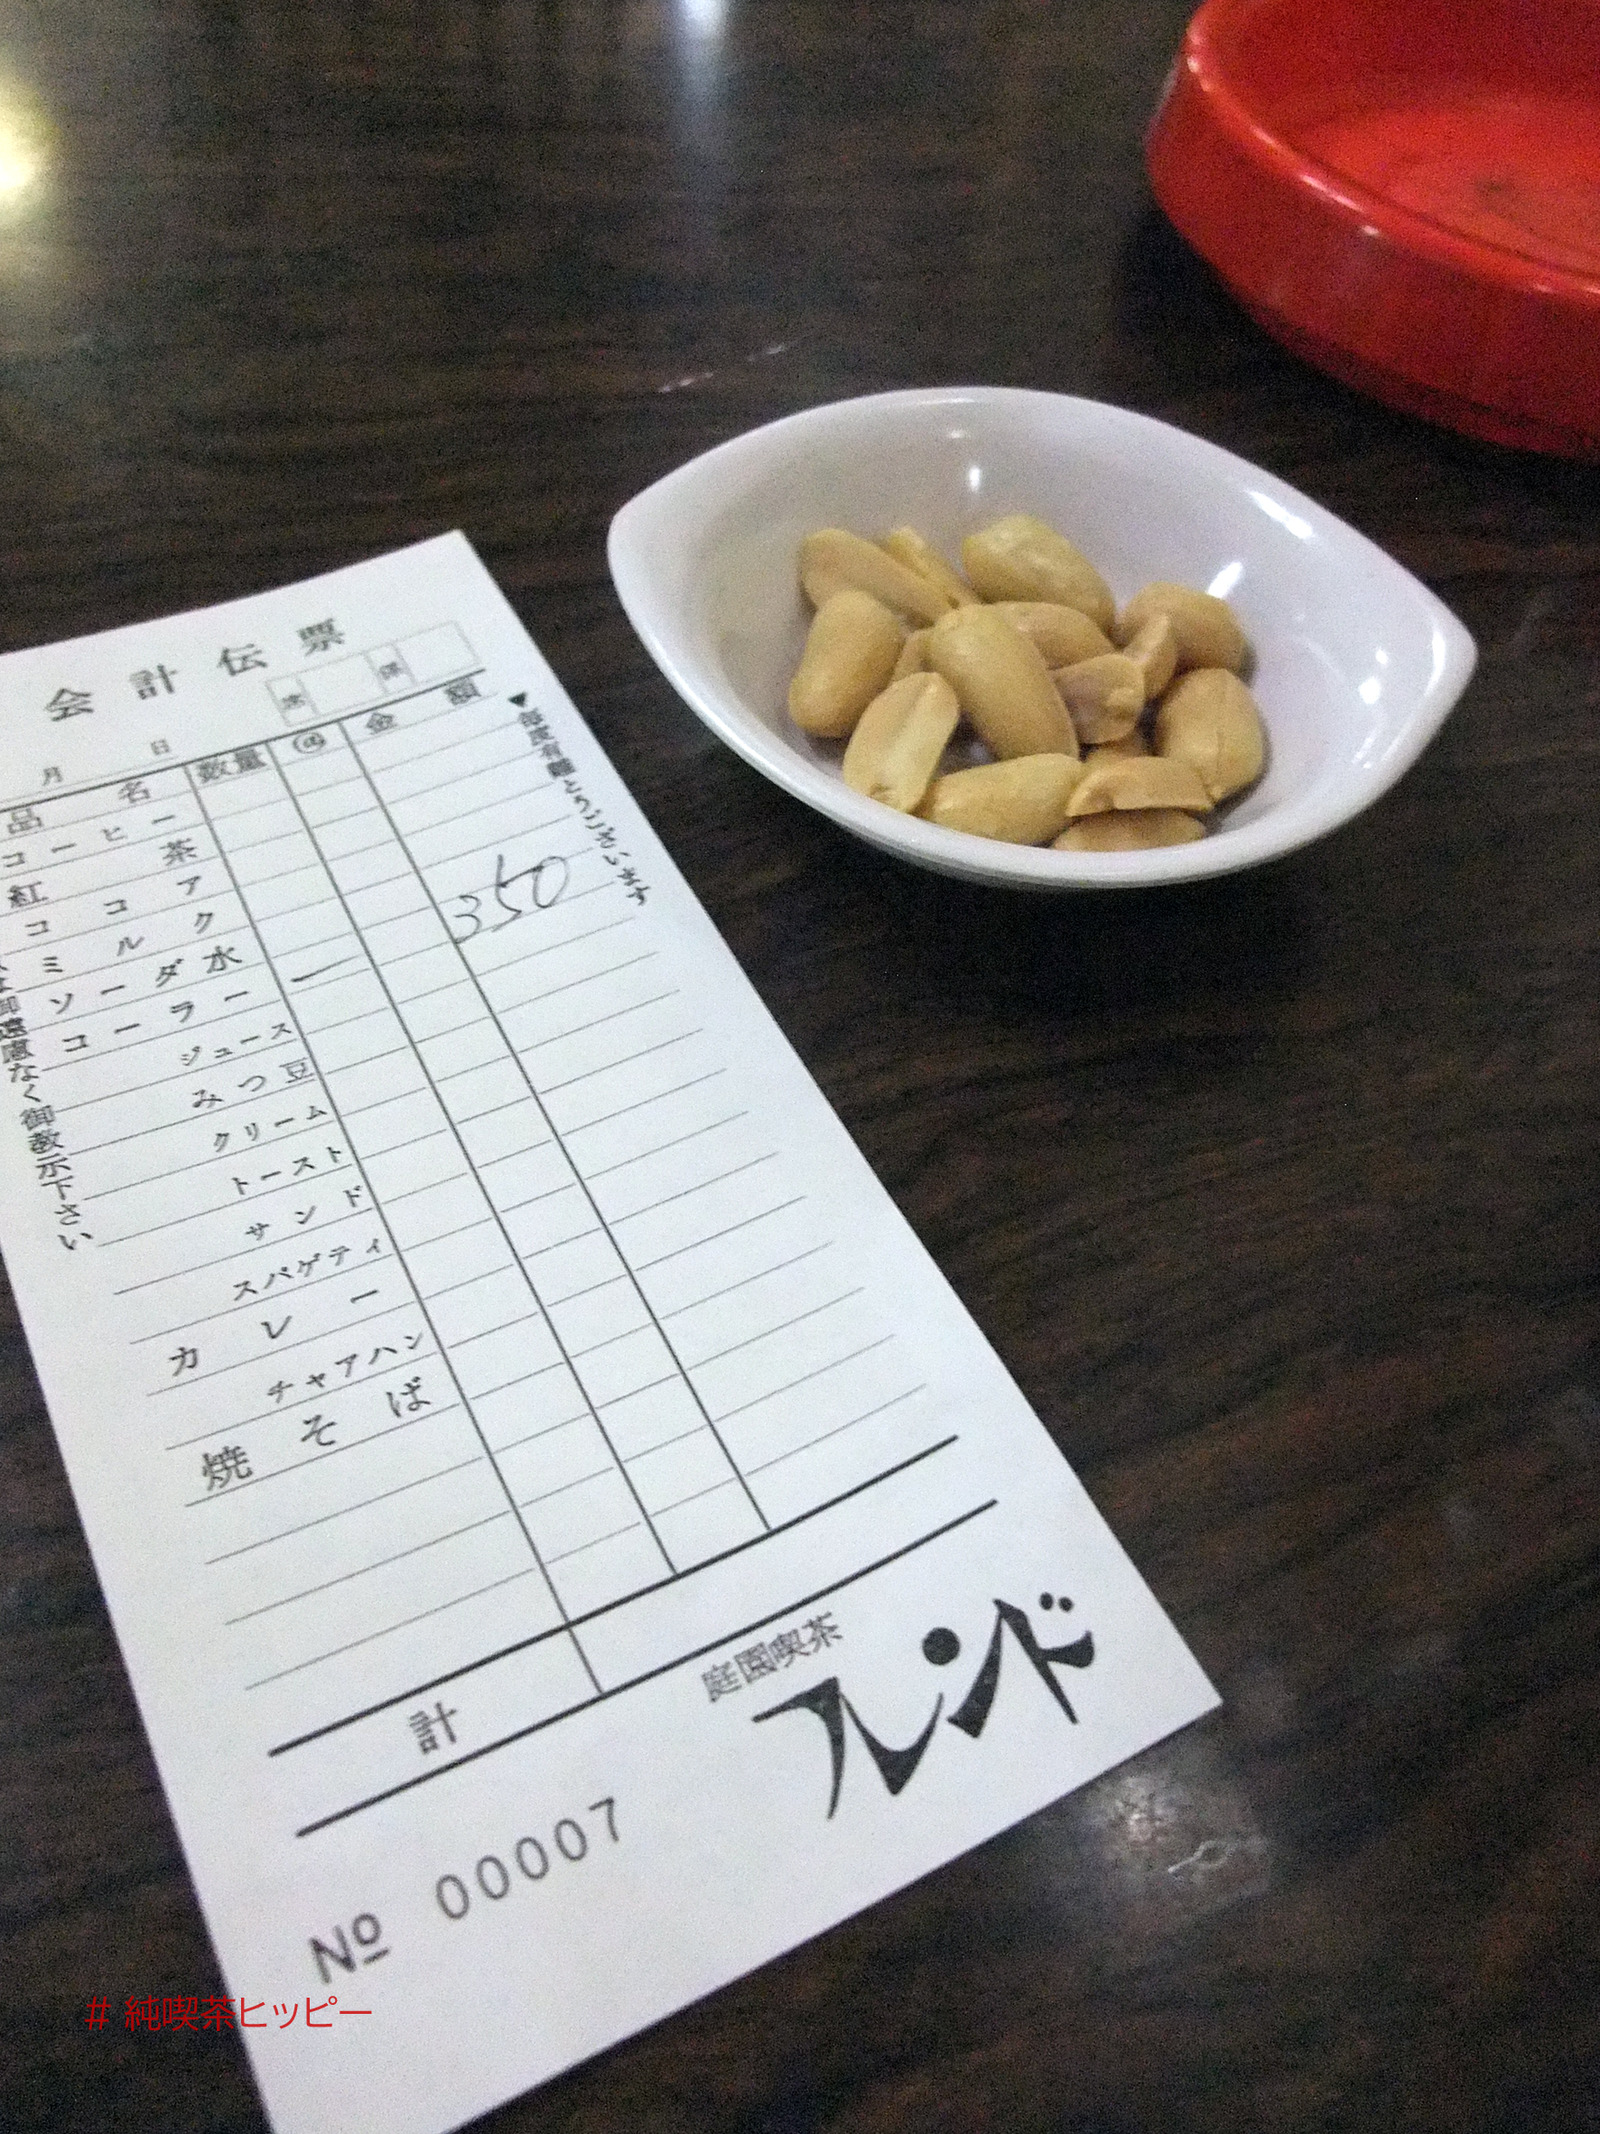 会計伝票
席 係
月 日
品名 数量 @ 金額
コーヒー
紅茶
ココア
ミルク
ソーダ水
コーラー 一 350
ジュース
みつ豆
クリーム
トースト
サンド
スパゲティ
カレー
チャアハン
焼そば
計
▼毎度有難とうございます
は御遠慮なく御教示下さい
庭園喫茶
フレンド
№ 00007
# 純喫茶ヒッピー